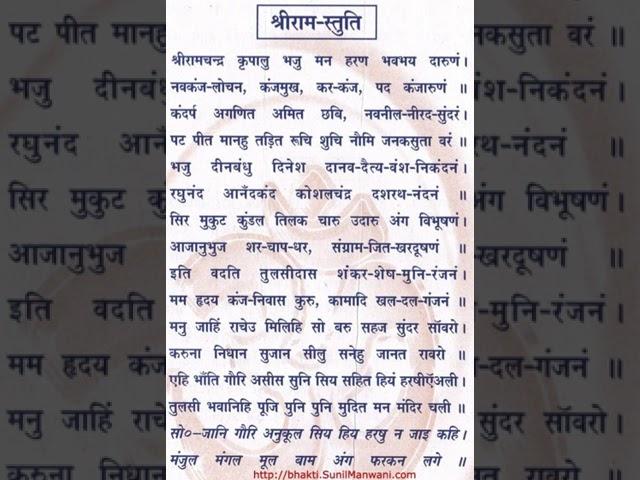 श्रीराम-स्तुति
श्रीरामचन्द्र कृपालु भजु मन हरण भवभय दारुणं।
नवकंज-लोचन, कंजमुख, कर-कंज, पद कंजारुणं ॥
कंदर्प अगणित अमित छबि, नवनील-नीरद-सुंदरं।
पट पीत मानहु तड़ित रूचि शुचि नौमि जनकसुता वरं ॥
भजु दीनबंधु दिनेश दानव-दैत्य-वंश-निकंदनं।
रघुनंद आनँदकंद कोशलचंद्र दशरथ-नंदनं ॥
सिर मुकुट कुंडल तिलक चारु उदारु अंग विभूषणं।
आजानुभुज शर-चाप-धर, संग्राम-जित-खरदूषणं ॥
इति वदति तुलसीदास शंकर-शेष-मुनि-रंजनं।
मम हृदय कंज-निवास कुरु, कामादि खल-दल-गंजनं ॥
मनु जाहिं राचेउ मिलिहि सो बरु सहज सुंदर साँवरो।
करुना निधान सुजान सीलु सनेहु जानत रावरो ॥
एहि भाँति गौरि असीस सुनि सिय सहित हियं हरषीऍअली।
तुलसी भवानिहि पूजि पुनि पुनि मुदित मन मंदिर चली ॥
सो०–जानि गौरि अनुकूल सिय हिय हरषु न जाइ कहि।
मंजुल मंगल मूल बाम अंग फरकन लगे ॥
http://bhakti.SunilManwani.com/